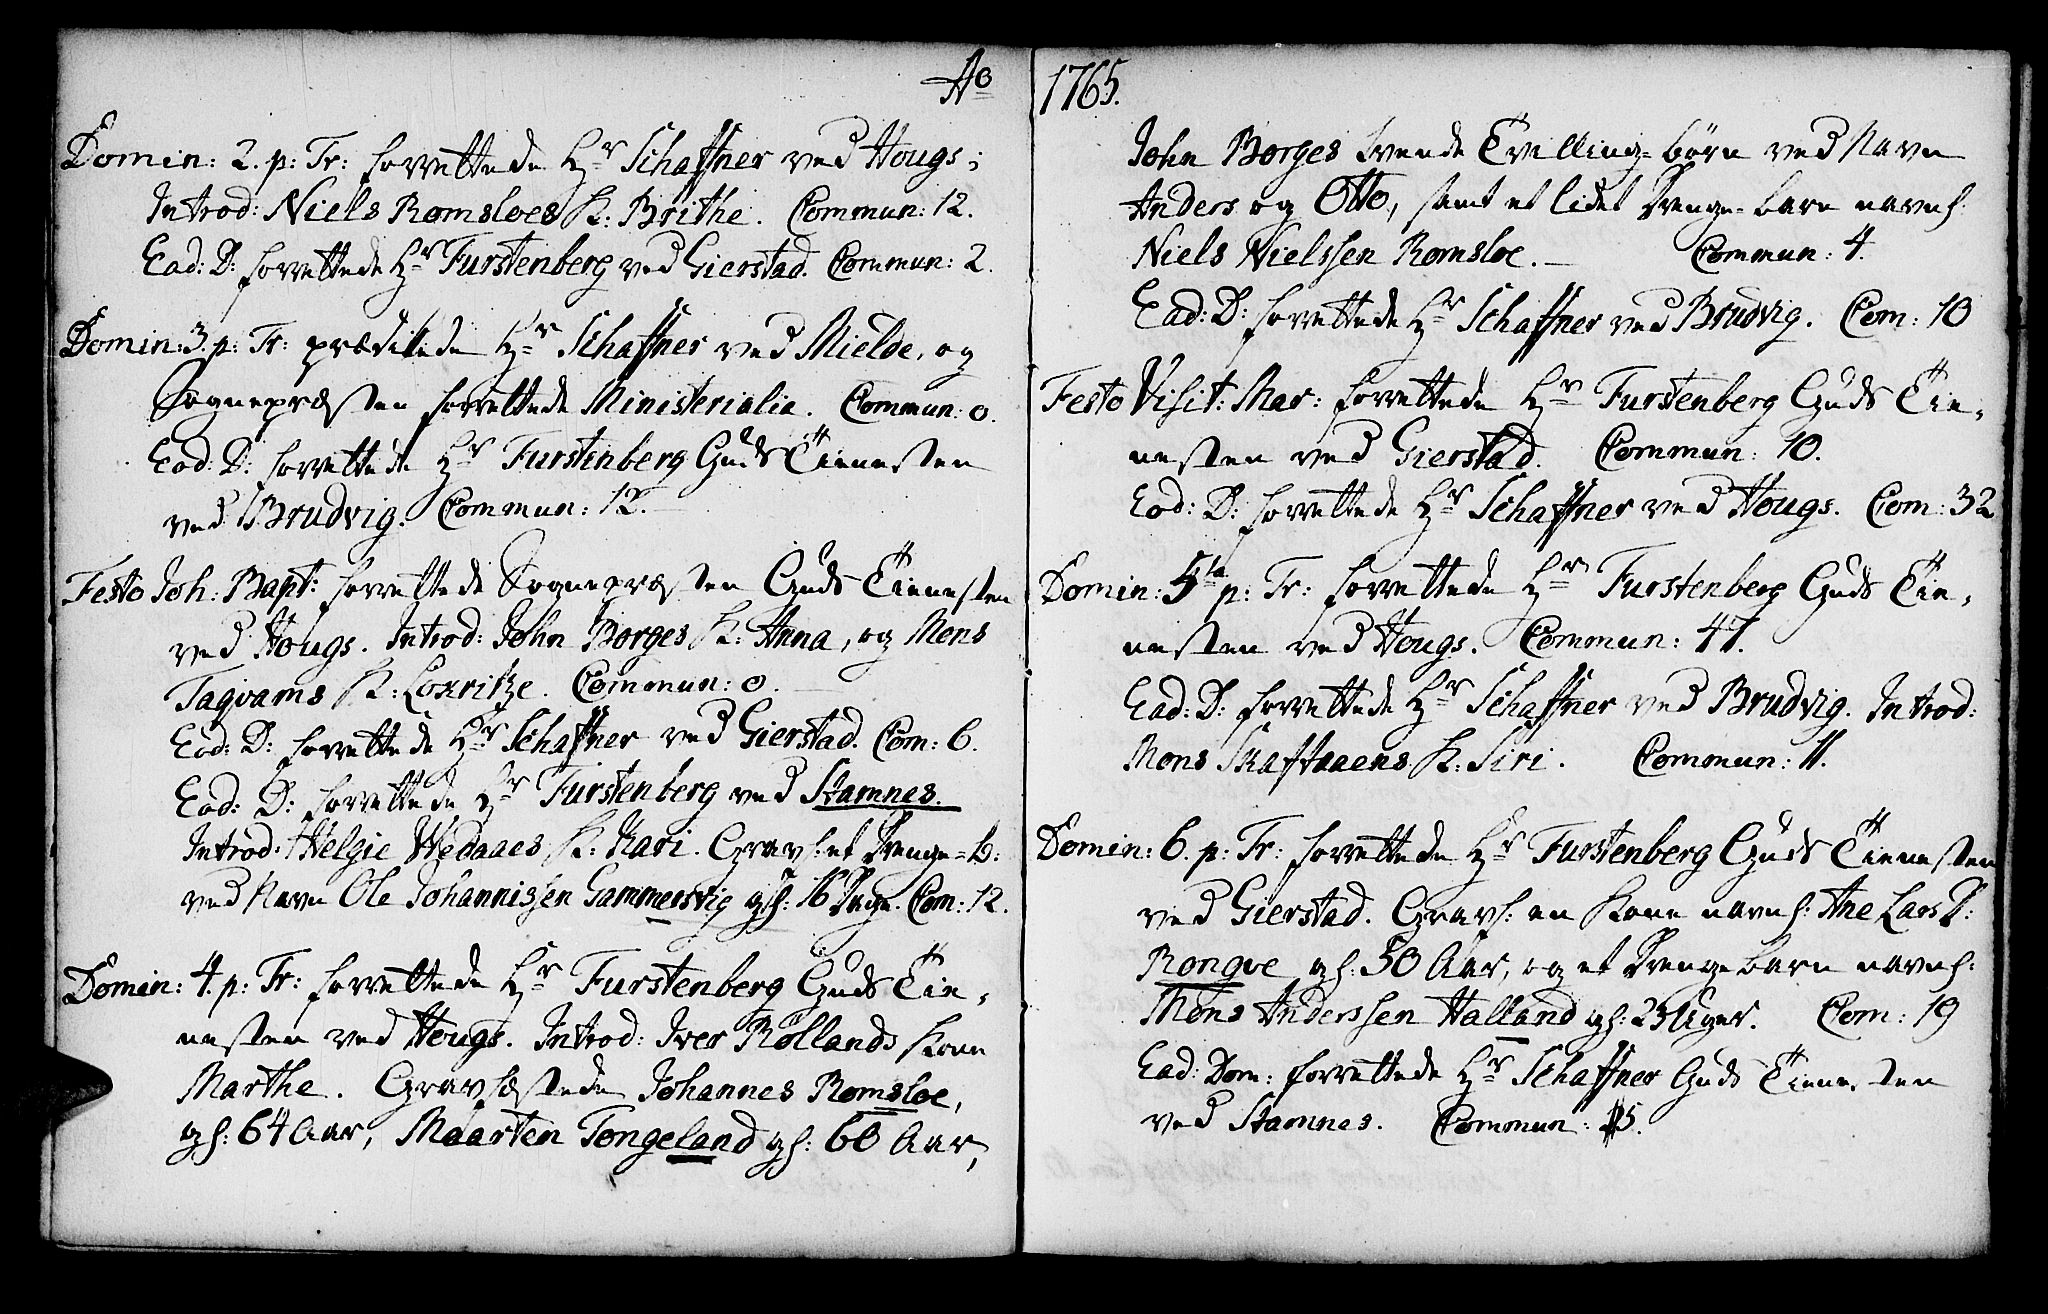 Ao
Domin: 2. p: Tr: forrettede Hr Schaffner ved Hougs;
Introd: Niels Romsloes K: Brithe. Commun: 12.
Ead: D: forrettede Hr Furstenberg ved Gierstad. Commun: 2.
Domin: 3. p: Tr: prædikede Hr Schaffner ved Mielde, og
Sognepræsten forrettede Ministerialia. Commun: 0.
Ead: D: forrettede Hr Furstenberg Guds Tienesten
ved Brudvig. Commun: 12.
Festo Joh: Bapt: forrettede Sognepræsten Guds Tienesten
ved Hougs. Introd: John Borges K: Anna, og Mens
Tagvams K: Loxritze. Commun: 0.
Ead: D: forrettede Hr Schaffner ved Gierstad. Com: 6.
Ead: D: forrettede Hr Furstenberg ved Stamnes.
Introd: Helgie Wedaaes K: Kari. Gravf: et Drenge=b:
ved Navn Ole Johannissen Gammersvig gl: 16 Dage. Com: 12.
Domin: 4. p: Tr: forrettede Hr Furstenberg Guds Tie=
nesten ved Hougs. Introd: Iver Rollands Kone
Marthe. Gravfæstede Johannes Romsloe,
gl: 64 Aar, Maarten Tongeland gl: 60 Aar,
1765.
John Borges tvende Tvilling=børn ved Navn
Anders og Otto, samt et lidet Drenge=barn navnl:
Niels Nielssen Romsloe. Commun: 4.
Ead: D: forrettede Hr Schaffner ved Brudvig. Com: 10
Festo Visit: Mar: forrettede Hr Furstenberg Guds Tie=
nesten ved Gierstad. Commun: 10.
Ead: D: forrettede Hr Schaffner ved Hougs. Com: 32
Domin: 5ta p: Tr: forrettede Hr Furstenberg Guds Tie=
nesten ved Hougs. Commun: 47.
Ead: D: forrettede Hr Schaffner ved Brudvig. Introd:
Mons Skaftaaens K: Siri. Commun: 11.
Domin: 6. p: Tr: forrettede Hr Furstenberg Guds Tienesten
ved Gierstad. Gravf: en Kone navnl: Ane Lars D:
Rongve gl: 50 Aar, og et Drengebarn navnl:
Mons Anderssen Halland gl: 23 Uger. Com: 19
Ead: Dom: forrettede Hr Schaffner Guds Tienesten
ved Stamnes. Commun: 15.